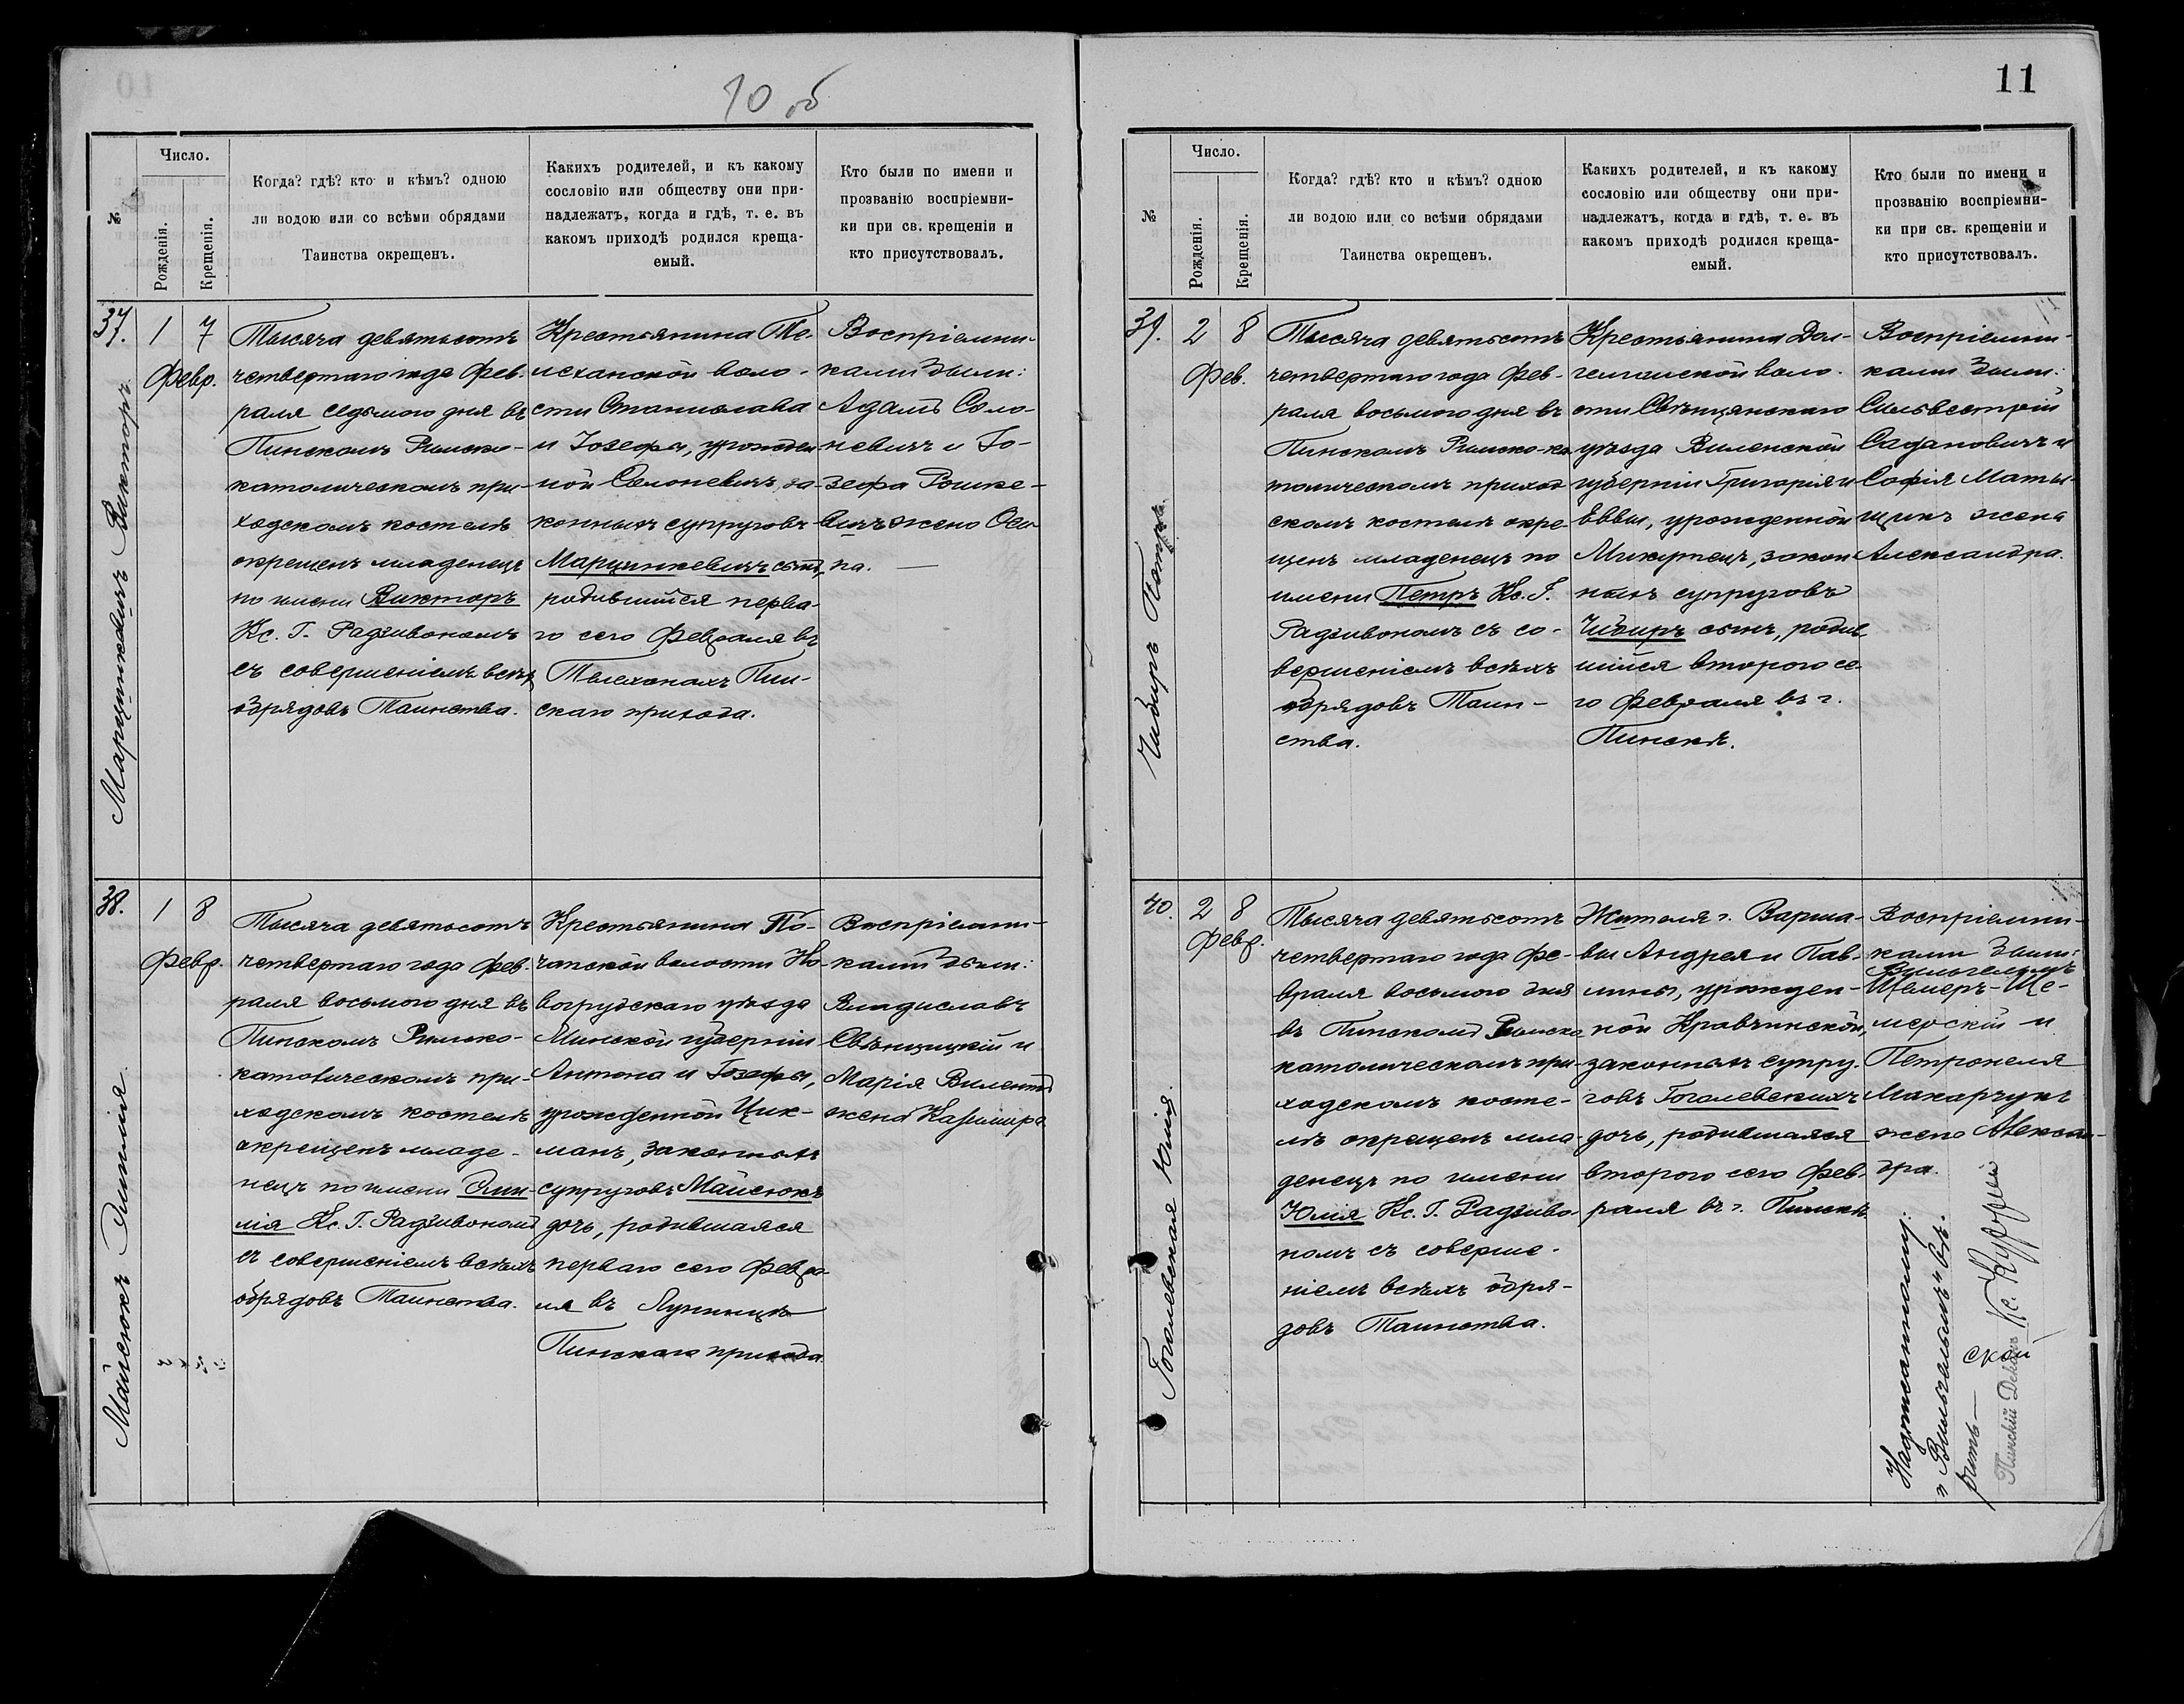 10 об
№
Число.
Рожденія.
Крещенія.
Когда? гдѣ? кто и кѣмъ? одною
ли водою или со всѣми обрядами
Таинства окрещенъ.
Какихъ родителей, и къ какому
сословію или обществу они при-
надлежатъ, когда и гдѣ, т. е. въ
какомъ приходѣ родился креща-
емый.
Кто были по имени и
прозванію воспріемни-
ки при св. крещеніи и
кто присутствовалъ.
37.
Марцинкевичъ Викторъ
1 7
Февр.
Тысяча девятьсотъ
четвертаго года Фев-
раля седьмого дня въ
Пинскомъ Римско-
католическомъ при-
ходскомъ костелѣ
окрещенъ младенецъ
по имени Викторъ
Кс. Г. Радзивономъ
съ совершеніемъ всѣхъ
обрядовъ Таинства.
Крестьянина Те-
леханской воло-
сти Станислава
и Іозефы, урожден
ной Солоневичъ, за-
конныхъ супруговъ
Марцинкевичъ сынъ,
родившійся перва-
го сего Февраля въ
Телеханахъ Пин-
скаго прихода.
Воспріемни-
ками были:
Адамъ Соло-
невичъ и Іо-
зефа
жена Оси-
па.
38.
Майсюкъ Эмилія
1 8
Февр.
Тысяча девятьсотъ
четвертаго года Фев-
раля восьмого дня въ
Пинскомъ Римско-
католическомъ при-
ходскомъ костелѣ
окрещенъ младе-
нецъ по имени Эми-
лія Кс. Г. Радзивономъ
съ совершеніемъ всѣхъ
обрядовъ Таинства.
Крестьянина По-
чапской волости Но-
вогрудскаго уѣзда
Минской губерніи
Антона и Іозефы,
урожденной Цик-
манъ, законныхъ
супруговъ Майсюкъ
дочь, родившаяся
перваго сего Февра-
ля въ Лунинцѣ
Пинскаго прихода.
Воспріемни-
ками были:
Владиславъ
Свѣнцицкій и
Марія
жена Казимира
11
№
Число.
Рожденія.
Крещенія.
Когда? гдѣ? кто и кѣмъ? одною
ли водою или со всѣми обрядами
Таинства окрещенъ.
Какихъ родителей, и къ какому
сословію или обществу они при-
надлежатъ, когда и гдѣ, т. е. въ
какомъ приходѣ родился креща-
емый.
Кто были по имени и
прозванію воспріемни-
ки при св. крещеніи и
кто присутствовалъ.
39.
Чибиръ Петръ
2 8
Фев.
Тысяча девятьсотъ
четвертаго года Фев-
раля восьмого дня въ
Пинскомъ Римско-ка
толическомъ приход
скомъ костелѣ окре-
щенъ младенецъ по
имени Петръ Кс. Г.
Радзивономъ съ со-
вершеніемъ всѣхъ
обрядовъ Таин-
ства.
Крестьянина Дол-
гелишской воло-
сти Свѣнцянскаго
уѣзда Виленской
губерніи Григорія и
Еввы, урожденной
закон
ныхъ супруговъ
Чибиръ сынъ, родив
шійся второго се-
го Февраля въ г.
Пинскѣ.
Воспріемни-
ками были:
Сильвестрій
Садановичъ и
Софія Маты-
щикъ жена
Александра.
40.
Гоголевская Юлія.
2 8
Февр.
Тысяча девятьсотъ
четвертаго года Фе-
враля восьмого дня
въ Пинскомъ Римско
католическомъ при-
ходскомъ косте-
лѣ окрещенъ мла-
денецъ по имени
Юлія Кс. Г. Радзиво-
номъ съ соверше-
ніемъ всѣхъ обря-
довъ Таинства.
Жителя г. Варша-
вы Андрея и Пав-
лины, урожден-
ной Кравчинской,
законныхъ супру-
говъ Гоголевскихъ
дочь, родившаяся
второго сего Фев-
раля въ г. Пинскѣ
Воспріемни-
ками были:
Вильгельмъ
Шемеръ-Ше-
мерскій и
Петронеля
Макарчукъ
жена Алексан-
дра.
Надписанному:
„Вильгельмъ" вѣ-
рить —
Пинскій Деканъ Кс.